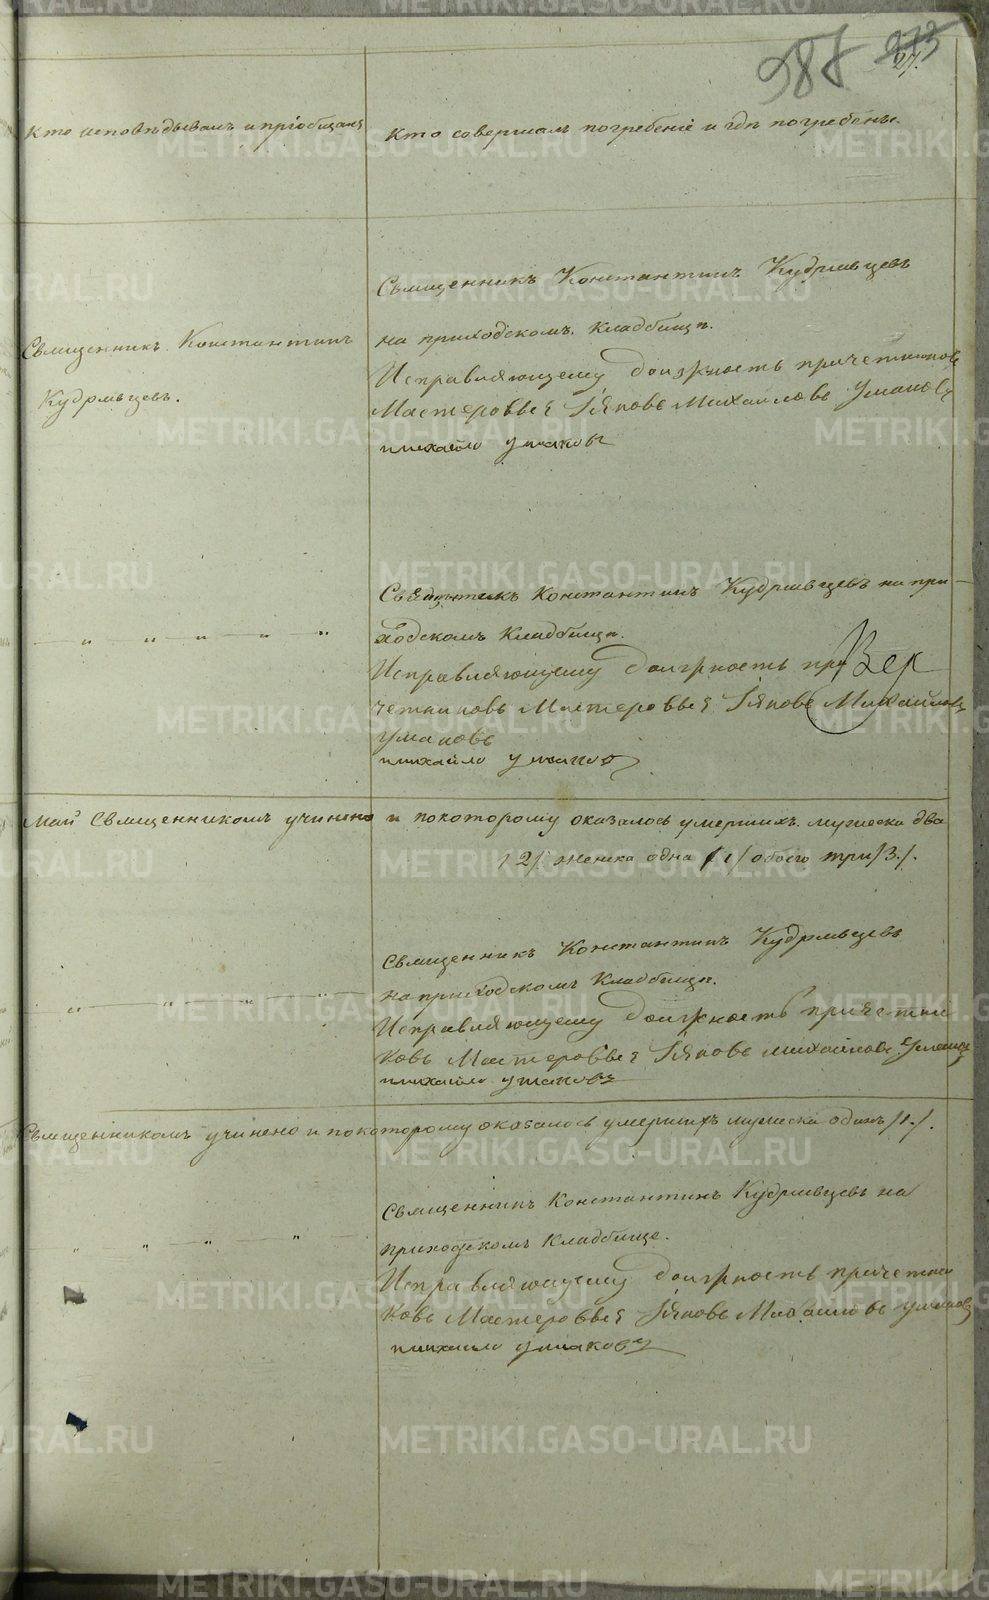 988 273
27.
Кто исповѣдывалъ и пріобщалъ
Кто совершалъ погребеніе и гдѣ погребены.
Священникъ Константинъ
Кудрявцевъ.
Священникъ Константинъ Кудрявцевъ
на приходскомъ кладбищѣ.
Исправляющему должность причетниковъ
Мастеровые Яковъ Михайловъ Ушаковъ
Михайло Ушаковъ
Священникъ Константинъ Кудрявцевъ на при-
ходскомъ кладбищѣ.
Исправляющему должность при Вер
четниковъ Мастеровые Яковъ Михайловъ
Ушаковъ
Михайло Ушаковъ
Май Священникомъ учинено и по которому оказалось умершихъ мужеска два
/2/ женска одна /1/ обоего три /3./.
Священникъ Константинъ Кудрявцевъ
на приходскомъ кладбищѣ.
Исправляющему должность причетни
ковъ Мастеровые Яковъ Михайловъ Ушаковъ
Михайло Ушаковъ
Священникомъ учинено и по которому оказалось умершихъ мужеска одинъ /1./.
Священникъ Константинъ Кудрявцевъ на
приходскомъ кладбище.
Исправляющему должность причетни
ковъ Мастеровые Яковъ Михайловъ Ушаковъ
Михайло Ушаковъ
METRIKI.GASO-URAL.RU